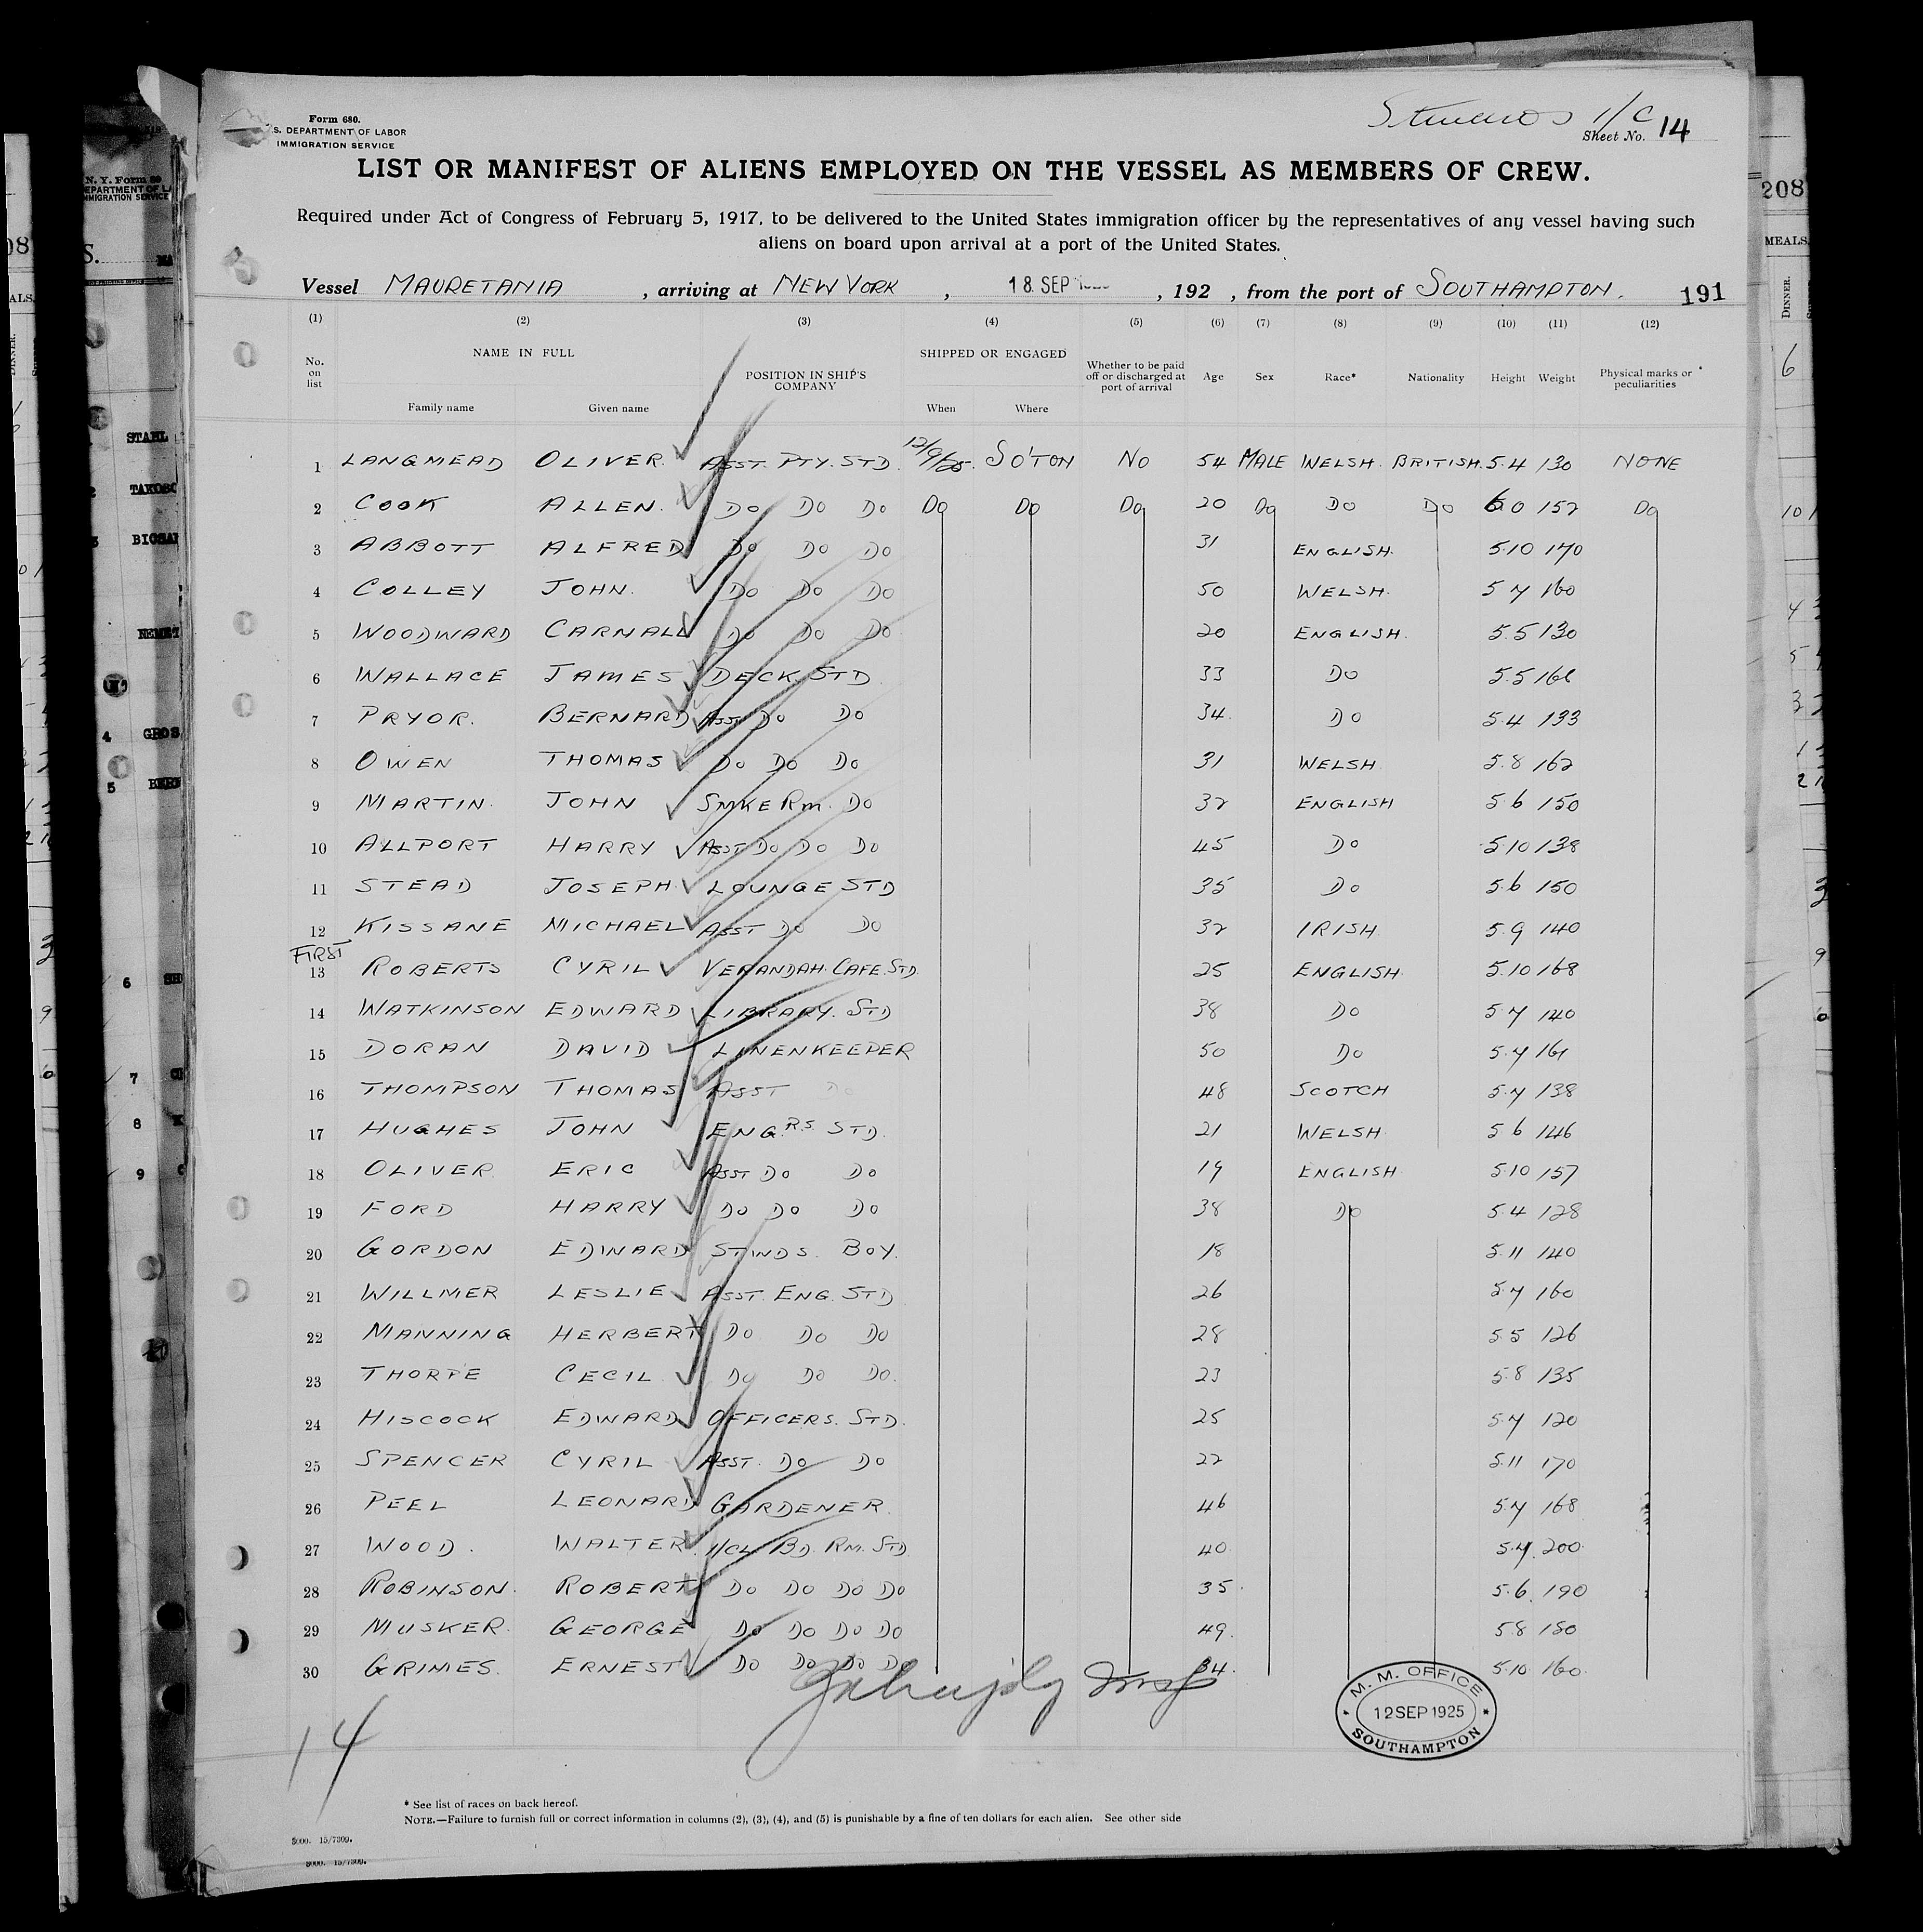 Form 680.
S. DEPARTMENT OF LABOR
IMMIGRATION SERVICE
1/C
Sheet No. 14
LIST OR MANIFEST OF ALIENS EMPLOYED ON THE VESSEL AS MEMBERS OF CREW.
Required under Act of Congress of February 5, 1917, to be delivered to the United States immigration officer by the representatives of any vessel having such
aliens on board upon arrival at a port of the United States.
Vessel MAURETANIA , arriving at NEW YORK , 18 SEP , 192 , from the port of SOUTHAMPTON. 191
(1) (2) (3) (4) (5) (6) (7) (8) (9) (10) (11) (12)
No. on list NAME IN FULL POSITION IN SHIP'S COMPANY SHIPPED OR ENGAGED Whether to be paid off or discharged at port of arrival Age Sex Race* Nationality Height Weight Physical marks or peculiarities
Family name Given name When Where
1 LANGMEAD OLIVER. ASST. PTY. STD. 12/9/25. SO'TON NO 54 MALE WELSH. BRITISH. 5.4 130 NONE
2 COOK ALLEN. DO DO DO DO DO DO 20 DO DO DO 6.0 152 DO
3 ABBOTT ALFRED DO DO DO 31 ENGLISH. 5.10 170
4 COLLEY JOHN. DO DO DO 50 WELSH. 5 7 160
5 WOODWARD CARNALL DO DO DO 20 ENGLISH. 5.5 130
6 WALLACE JAMES DECK STD 33 DO 5.5
7 PRYOR. BERNARD ASST DO DO 34. DO 5.4 133
8 OWEN THOMAS DO DO DO 31 WELSH 5.8 162
9 MARTIN. JOHN SMKE RM. DO 32 ENGLISH 5.6 150
10 ALLPORT HARRY ASST DO DO DO 45 DO 5.10 138
11 STEAD JOSEPH. LOUNGE STD 35 DO 5.6 150
12 KISSANE MICHAEL ASST DO DO 32 IRISH 5.9 140
FIRST
13 ROBERTS CYRIL VERANDAH. CAFE. STD. 25 ENGLISH. 5.10 168
14 WATKINSON EDWARD LIBRARY. STD 38 DO 5.7 140
15 DORAN DAVID LINENKEEPER 50 DO 5.7
16 THOMPSON THOMAS ASST DO 48 SCOTCH 5.7 138
17 HUGHES JOHN ENGRS. STD. 21 WELSH 5 6 146
18 OLIVER ERIC ASST DO DO 19 ENGLISH 5.10 157
19 FORD HARRY DO DO DO 38 DO 5.4 128
20 GORDON EDWARD STWDS. BOY. 18 5.11 140
21 WILLMER LESLIE ASST. ENG. STD 26 5.7 160
22 MANNING HERBERT DO DO DO 28 5.5 126
23 THORPE CECIL DO DO DO. 23 5.8 135
24 HISCOCK EDWARD OFFICERS. STD. 25 5.7 120
25 SPENCER CYRIL ASST. DO DO 22 5.11 170
26 PEEL LEONARD GARDENER. 46 5.7 168
27 WOOD. WALTER 1/CL BD. RM. STD 40 5.7. 200.
28 ROBINSON. ROBERT DO DO DO DO 35. 5.6. 190
29 MUSKER. GEORGE DO DO DO DO 49. 5.8 180
30 GRIMES. ERNEST DO DO DO DO 34. 5.10 160.
M. M. OFFICE
12 SEP 1925
SOUTHAMPTON
14
* See list of races on back hereof.
NOTE.—Failure to furnish full or correct information in columns (2), (3), (4), and (5) is punishable by a fine of ten dollars for each alien. See other side
3000. 15/7309.
3000. 15/7309.
N. Y. Form 89
STAHL
GROS
208
MEALS.
DINNER.